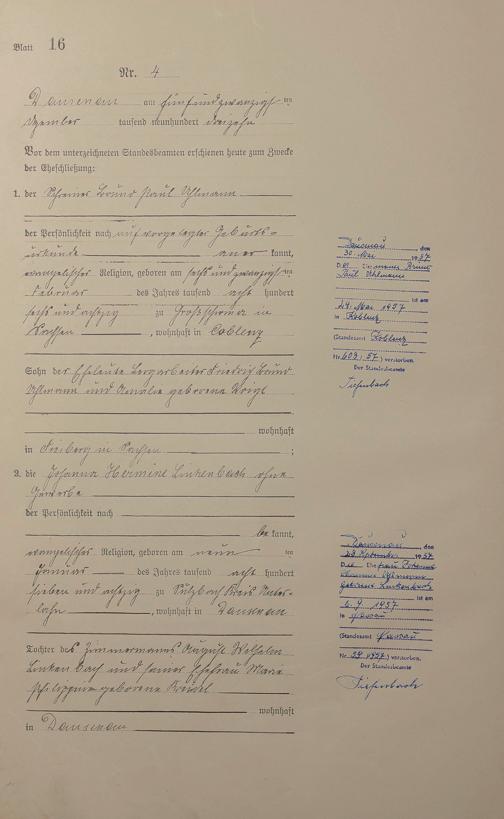 Blatt 16
Nr. 4
Dausenau am fünfundzwanzigsten
Dezember tausend neunhundert dreizehn
Vor dem unterzeichneten Standesbeamten erschienen heute zum Zwecke
der Eheschließung:
1. der Schreiner Bruno Paul Uhlmann
der Persönlichkeit nach auf vorgelegter Geburts-
urkunde aner kannt,
evangelischer Religion, geboren am sechsundzwanzigsten
Februar des Jahres tausend acht hundert
sechs und achtzig zu Großschirma in
Sachsen, wohnhaft in Coblenz
Sohn der Eheleute Bergarbeiter Friedrich Bruno
Uhlmann und Amalie geborene
wohnhaft
in Freiberg in Sachsen;
2. die Johanna Hermine Linkenbach ohne
Gewerbe
der Persönlichkeit nach
be kannt,
evangelischer Religion, geboren am neunten
Januar des Jahres tausend acht hundert
sieben und achtzig zu Sulzbach Kreis Unter-
lahn, wohnhaft in Dausenau
Tochter des Zimmermanns August Wilhelm
Linkenbach und seiner Ehefrau Marie
Philippine geborene
wohnhaft
in Dausenau
Dausenau, den
30. Mai 1957
Der Bruno
Paul Uhlmann
ist am
24. Mai 1957
in Koblenz
(Standesamt Koblenz
Nr. 609/57) verstorben.
Der Standesbeamte
Tiefenbach
Dausenau, den
23. September 1957
Die Ehefrau Johanna
Hermine Uhlmann
geborene Linkenbach
ist am
6.9.1957
in Nassau
(Standesamt Nassau
Nr. 39/1957) verstorben.
Der Standesbeamte
Tiefenbach